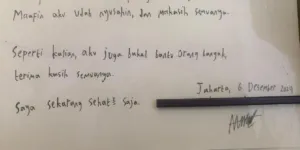 Maapin aku udah nyusahin, dan makasih semuanya.
Seperti kalian, aku juga bakal bantu orang banyak,
terima kasih semuanya.
Jakarta, 6 Desember 2024
Saya sekarang sehat² saja.